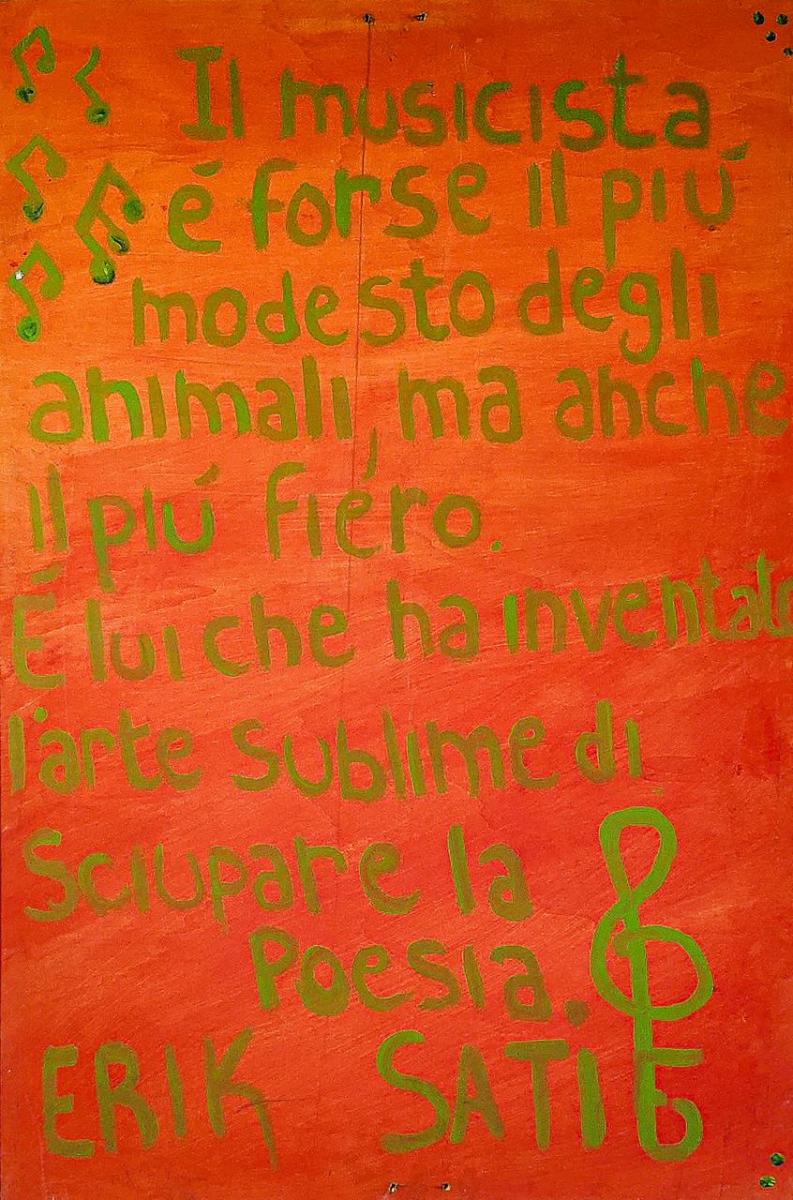 Il musicista
é forse il piú
modesto degli
animali, ma anche
il piú fiéro.
É lui che ha inventato
l'arte sublime di
Sciupare la
Poesia.
ERIK SATIE